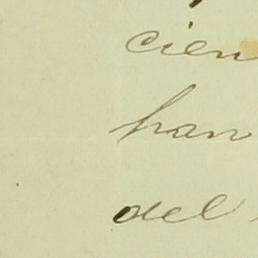 cien
han
del